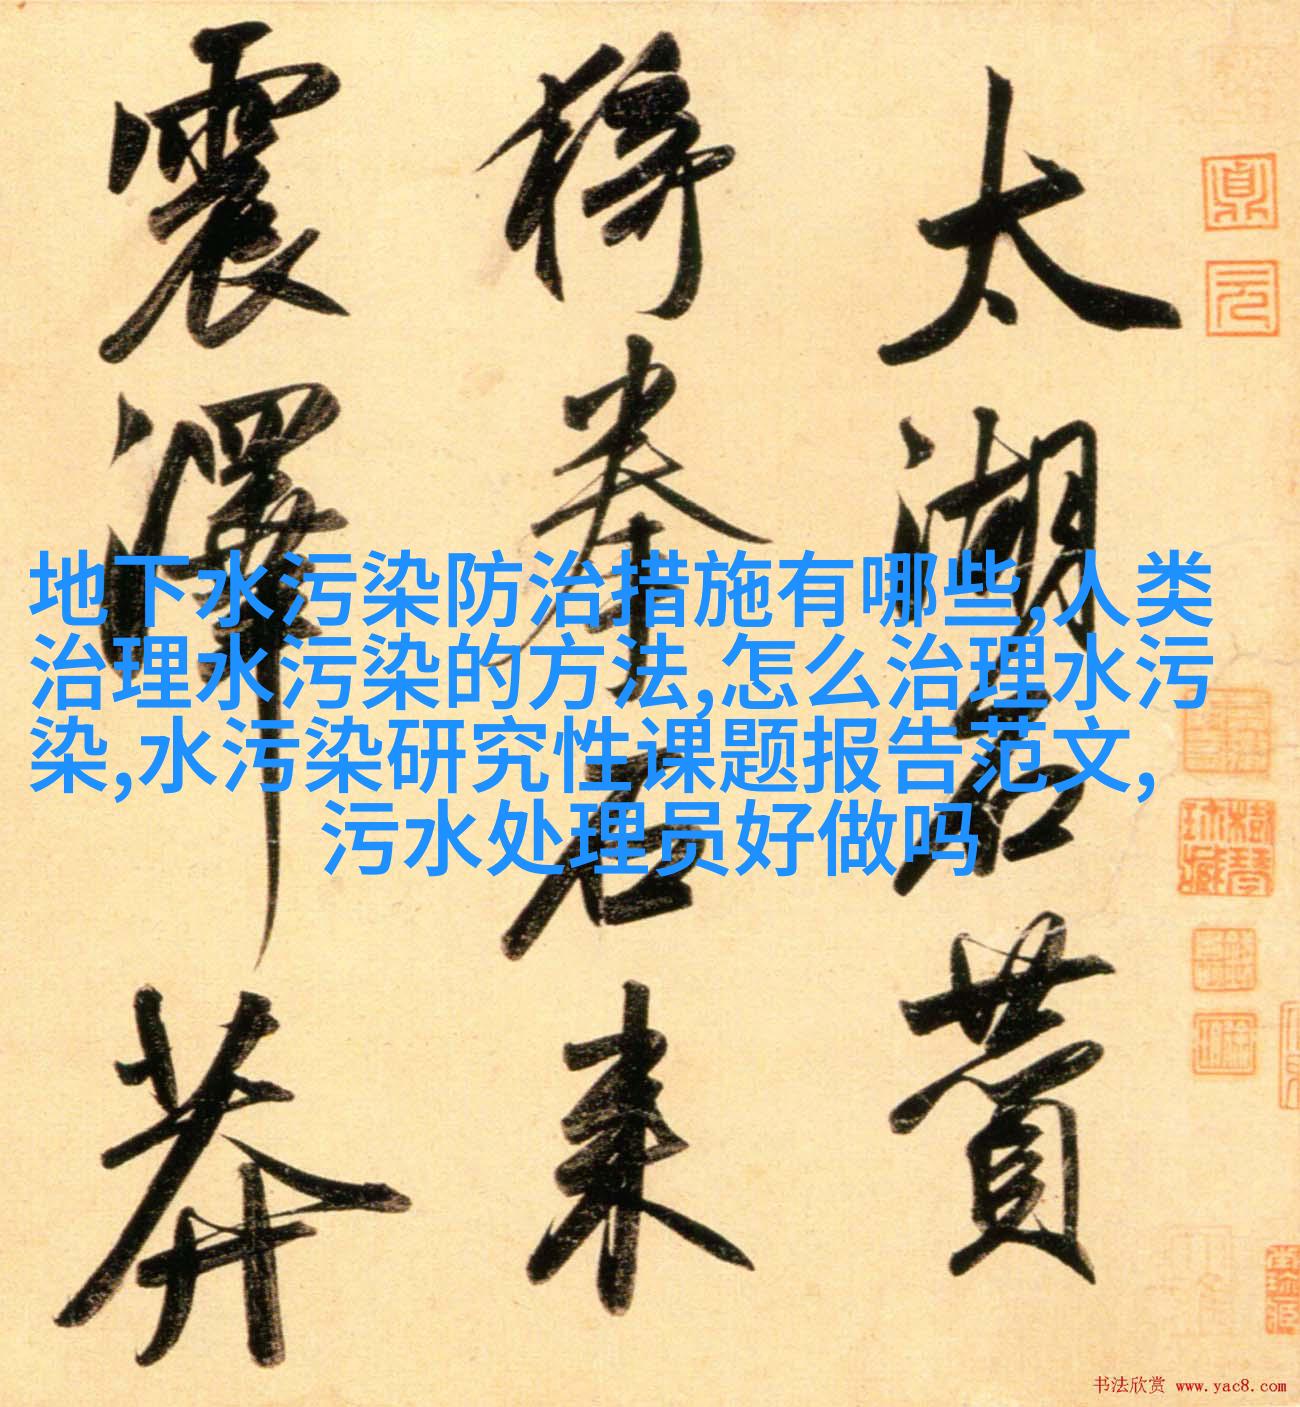 太湖石贊
猗拳石来
震澤莽
地下水污染防治措施有哪些,人类
治理水污染的方法,怎么治理水污
染,水污染研究性课题报告范文,
污水处理员好做吗
书法欣赏 www.yac8.com